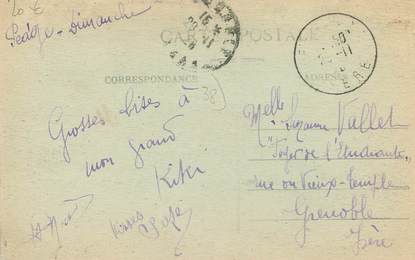 20 €
Péage - Dimanche
CARTE POSTALE
CORRESPONDANCE
ADRESSE
38
Grosses bises à
mon grand
Kiki
Melle Suzanne Vallet
Foyer de l'Etudiante
rue du Vieux-Temple
Grenoble
Isère